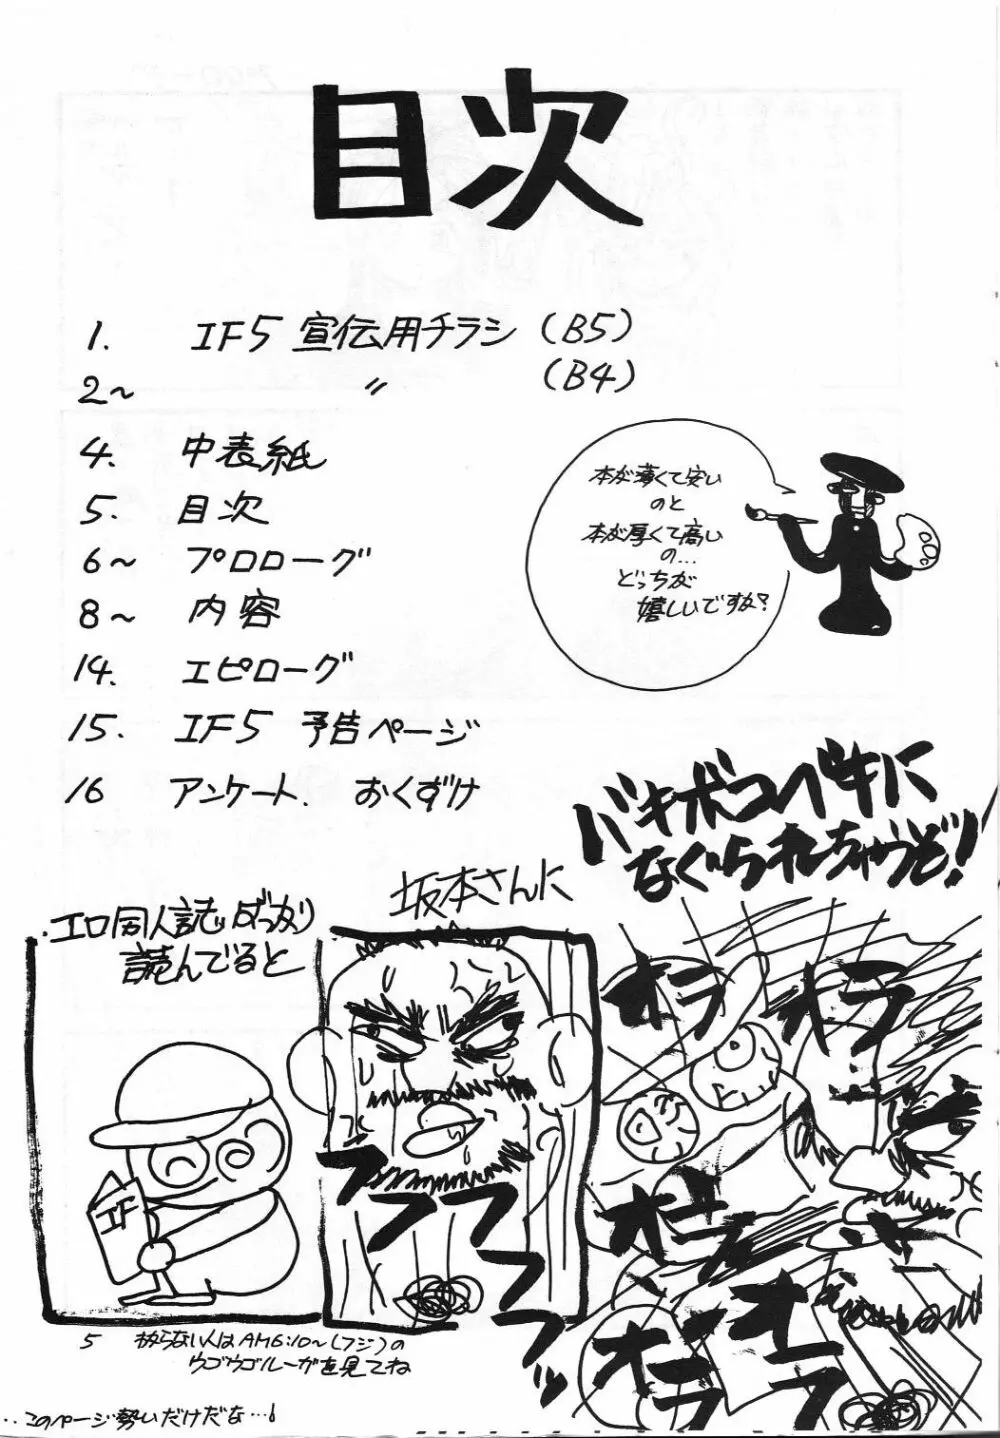 目次
1. IF5 宣伝用チラシ (B5)
2〜 〃 (B4)
4. 中表紙
5. 目次
6〜 プロローグ
8〜 内容
14. エピローグ
15. IF5 予告ページ
16 アンケート. おくずけ
本が薄くて安い
のと
本が厚くて高い
の…
どっちが
嬉しいですか?
.エロ同人誌ばっかり
読んでると
IF
坂本さんに
フフフフフフッ
バキボコベキに
なぐられちゃうぞ!
オラ
オラ
オラ
オラ
オラ
オラ
5 わからない人はAM6:10〜(フジ)の
ウゴウゴルーガを見てね
‥このページ勢いだけだな…!